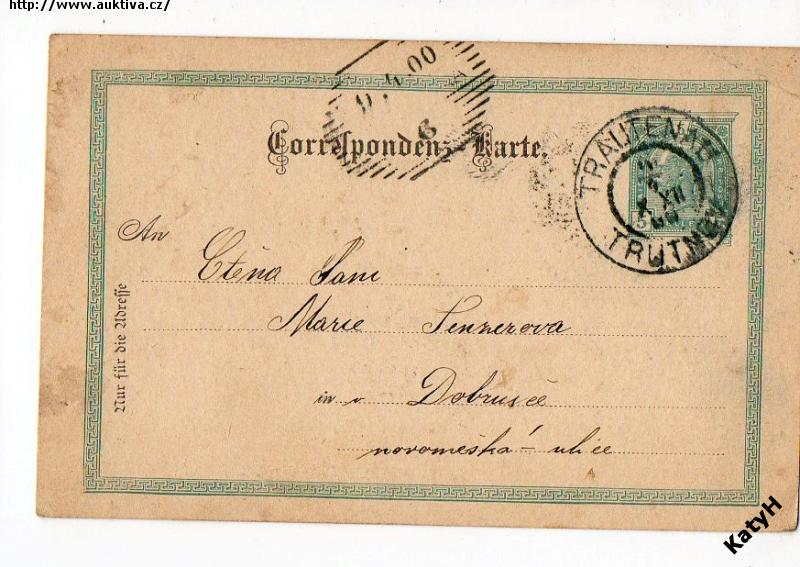 http://www.auktiva.cz/
Correspondenz-Karte.
TRAUTENAU
XII
TRUTNOV
An
Ctěná Paní
Marie
in v Dobrušce
novoměská ulice
Nur für die Adresse
KatyH